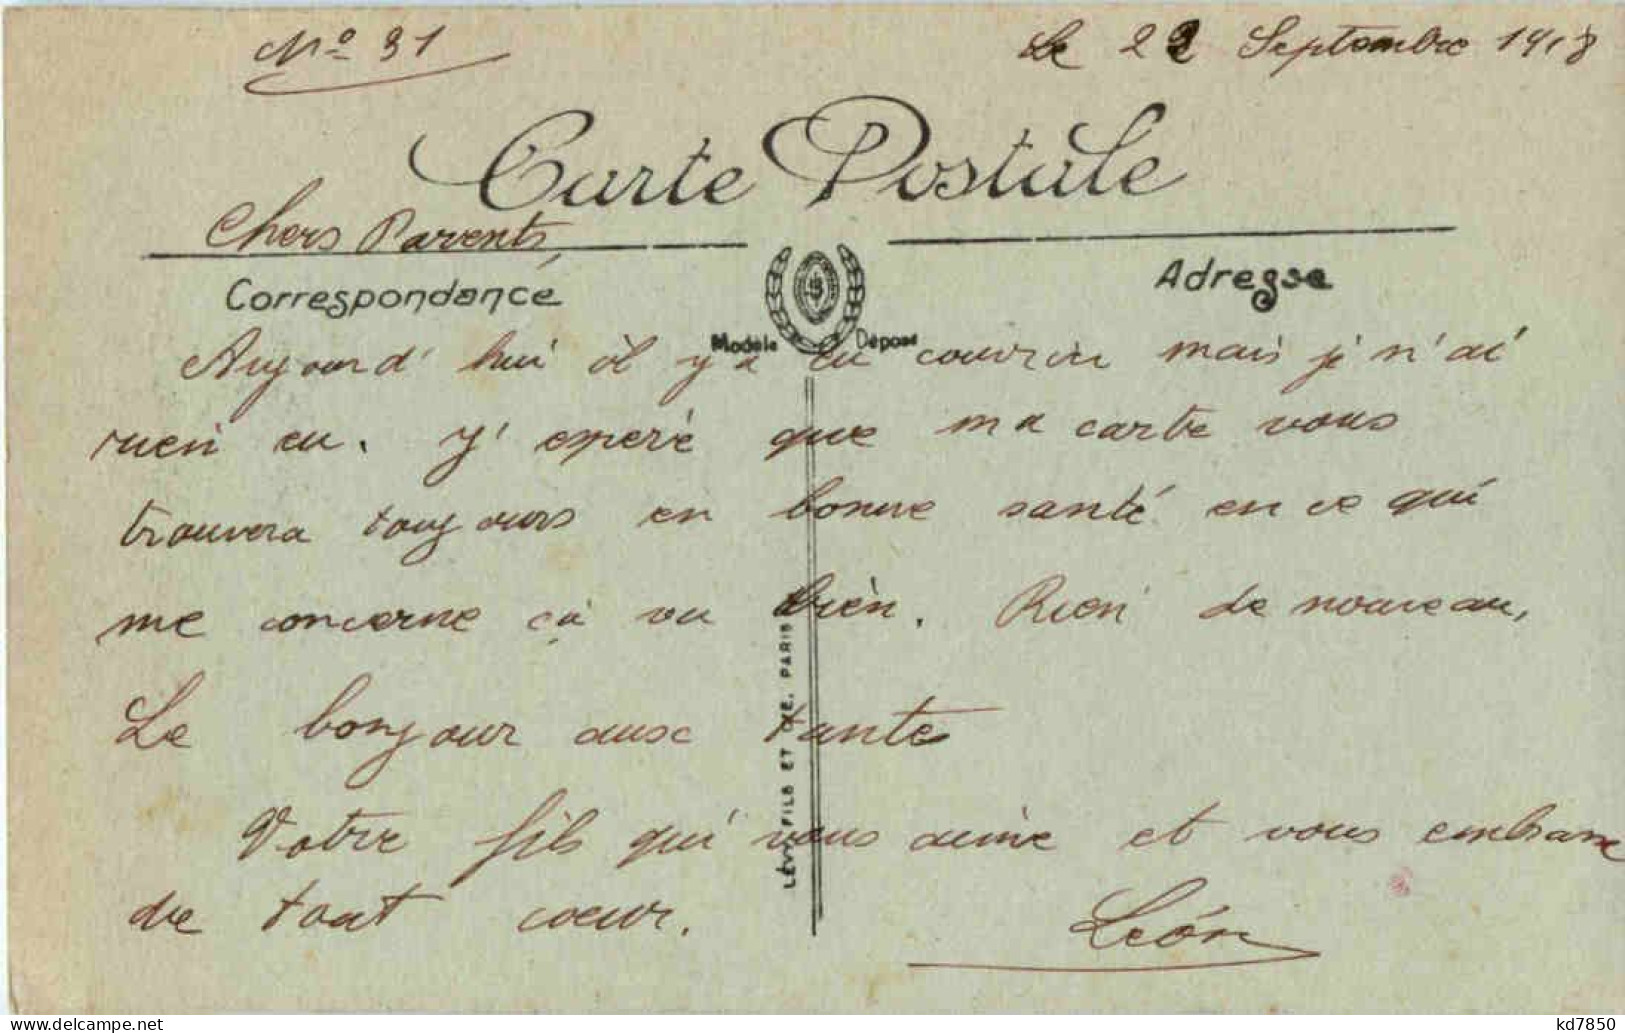 No 31
Le 22 Septembre 1918
Carte Postale
Chers Parents,
Correspondance
Adresse
Modèle Déposé
Aujourd'hui il y a eu courrier mais je n'ai
rien eu. J'espère que ma carte vous
trouvera toujours en bonne santé en ce qui
me concerne ça va bien. Rien de nouveau,
Le bonjour aux tantes
Votre fils qui vous aime et vous embrasse
de tout coeur.
Léon
LÉVY FILS ET CIE. PARIS
kd7850